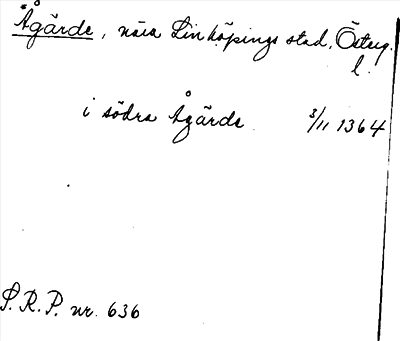 *Ågärde, nära Linköpings stad, Östерg.
l.
i södra Ågärde 3/11 1364
S.R.P. nr. 636